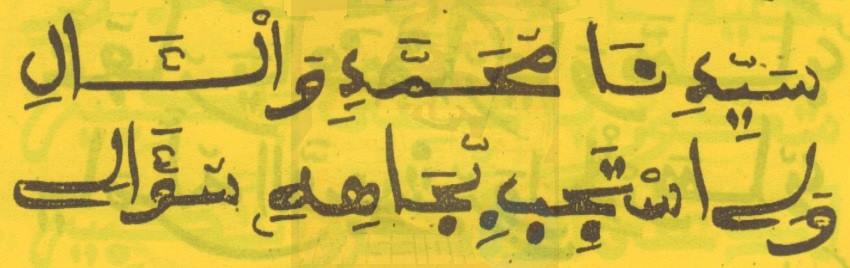 سَيِّدِنَا مُحَمَّدٍ وَالْـَٔالِ
وَلِي اسْتَجِبْ بِجَاهِهِ سُؤَالِي